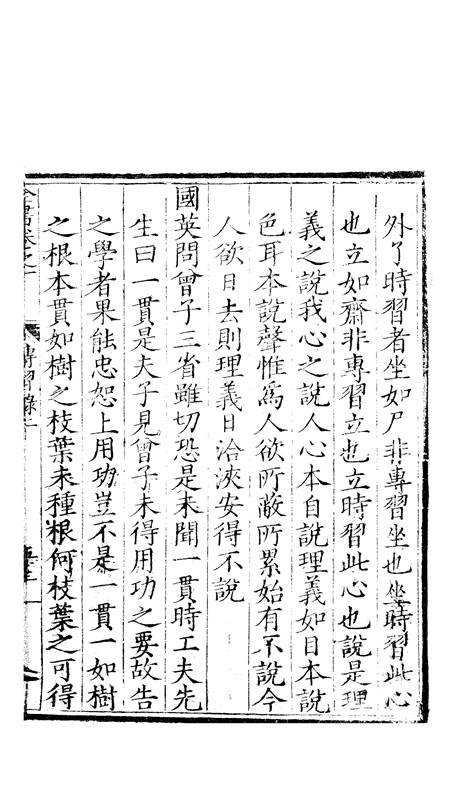 外了時習者坐如尸非專習坐也坐時習此心
也立如齋非專習立也立時習此心也說是理
義之說我心之說人心本自說理義如目本說
色耳本說聲惟爲人欲所蔽所累始有不說今
人欲日去則理義日洽浹安得不說
國英問曾子三省雖切恐是未聞一貫時工夫先
生曰一貫是夫子見曾子未得用功之要故告
之學者果能忠恕上用功豈不是一貫一如樹
之根本貫如樹之枝葉未種根何枝葉之可得
全書卷之一 傳習錄上